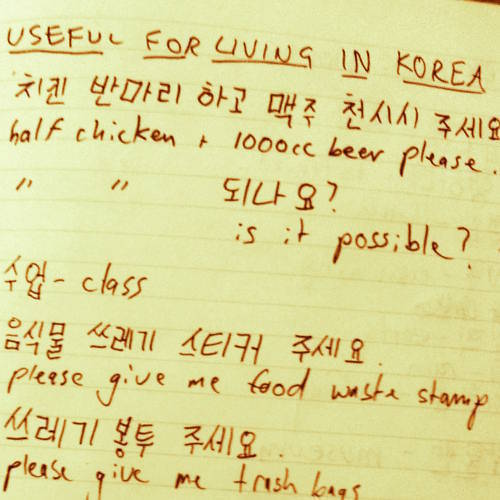 USEFUL FOR LIVING IN KOREA
치킨 반마리 하고 맥주 천시시 주세요
half chicken + 1000cc beer please.
" " 되나요?
is it possible?
수업 - class
음식물 쓰레기 스티커 주세요.
please give me food waste stamp
쓰레기 봉투 주세요.
please give me trash bags